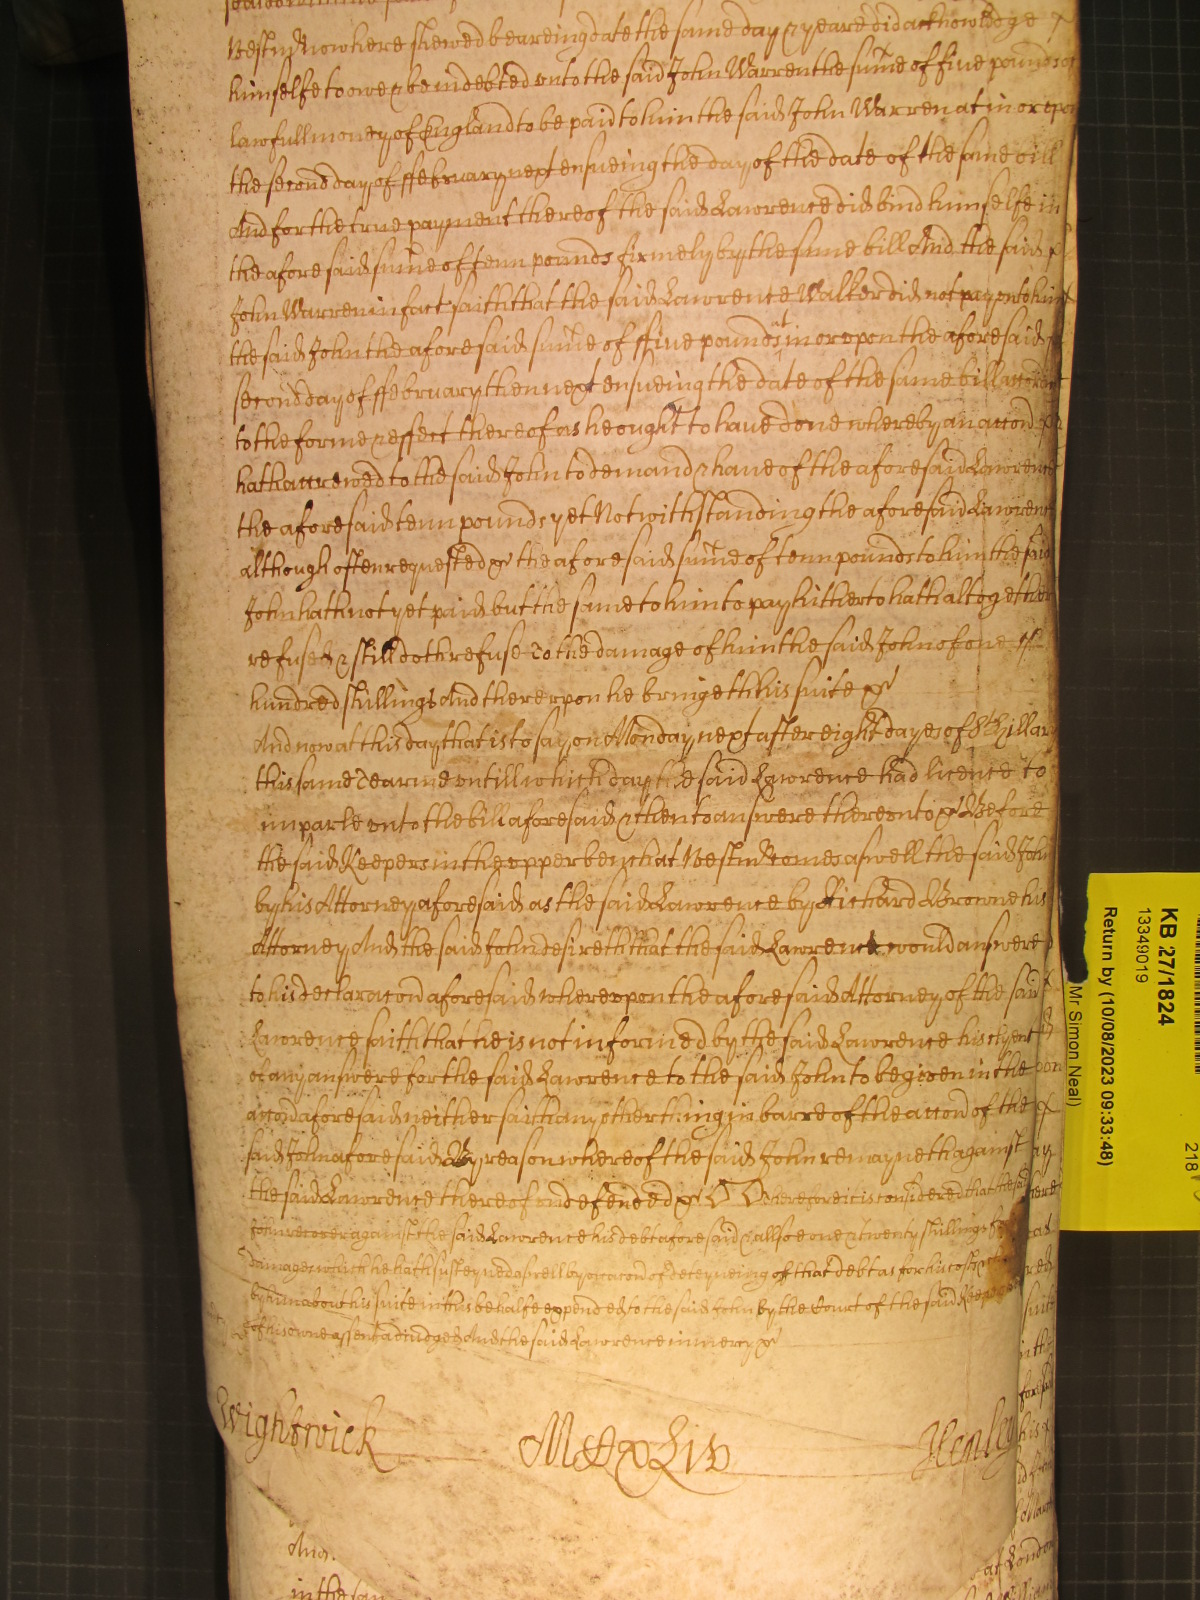 Westm̃ now here shewed beareing date the same day & yeare did acknowledge
himselfe to owe & be indebted unto the said John Warren the sum̃e of five pounds of
lawfull money of England to be paid to him the said John Warren at in or upon
the second day of ffebruary next ensueing the day of the date of the same bill
And for the true payment thereof the said Lawrence did bind himselfe in
the aforesaid sum̃e of tenn pounds firmely by the same bill And the said
John Warren in fact saith that the said Lawrence Walter did not pay unto him
the said John the aforesaid sum̃e of ffive pounds at in or upon the aforesaid
second day of ffebruary then next ensueing the date of the same bill
to the forme & effect thereof as he ought to have done whereby an accon̄
hath accrewed to the said John to demand & have of the aforesaid Lawrence
the aforesaid tenn pounds yet Notwithstanding the aforesaid Lawrence
although often requested &c the aforesaid sum̃e of tenn pounds to him the said
John hath not yet paid but the same to him to pay hitherto hath altogether
refused & still doth refuse To the damage of him the said John of one
hundred shillings And thereupon he bringeth his suite &c
And now at this day that is to say on Monday next after eight dayes of St Hillary
this same Tearme untill which day the said Lawrence had licence to
imparle unto the bill aforesaid & then to answere thereunto &c Before
the said Keepers in the upper bench at Westm̃ comes aswell the said John
by his Attorney aforesaid as the said Lawrence by Richard Browne his
Attorney And the said John desireth that the said Lawrence would answere
to his declaracon̄ aforesaid whereupon the aforesaid Attorney of the said
Lawrence saith that he is not informed by the said Lawrence his clyent
of any answere for the said Lawrence to the said John to be given in the
accon̄ aforesaid neither saith any other thing in barre of the accon̄ of the
said John aforesaid By reason whereof the said John remayneth against
the said Lawrence thereof undefended &c Therefore it is considered that the said
John recover against the said Lawrence his debt aforesaid & allsoe one & twenty shillings for
damages which he hath susteyned aswell by occacon̄ of deteyneing of that debt as for his costs
by him about his suite in this behalfe expended to the said John by the Court of the said Keepers
of his owne assent adiudged And the said Lawrence in mercy &c
Wightwick
M D x Liv
Henley
in the
of London
KB 27/1824
13349019
Return by (10/08/2023 09:33:48)
Mr Simon Neal)